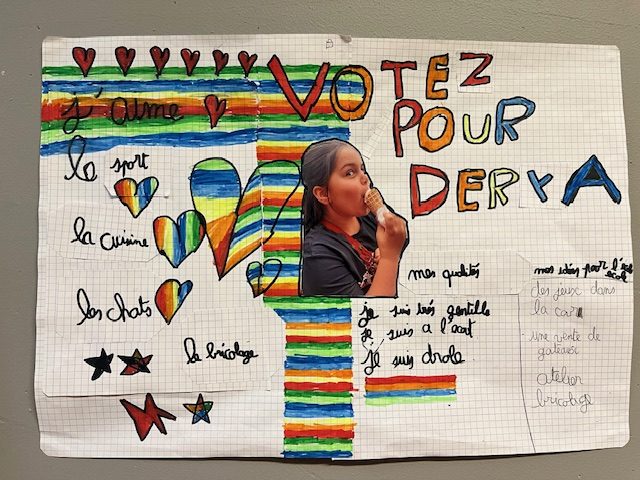 VOTEZ
POUR
DERYA
j'aime
le sport
la cuisine
les chats
le bricolage
mes qualités
je suis très gentille
je suis a l'
je suis drole
mes idées pour l'école
des jeux dans
la cour
une vente de
gateaux
atelier
bricolage